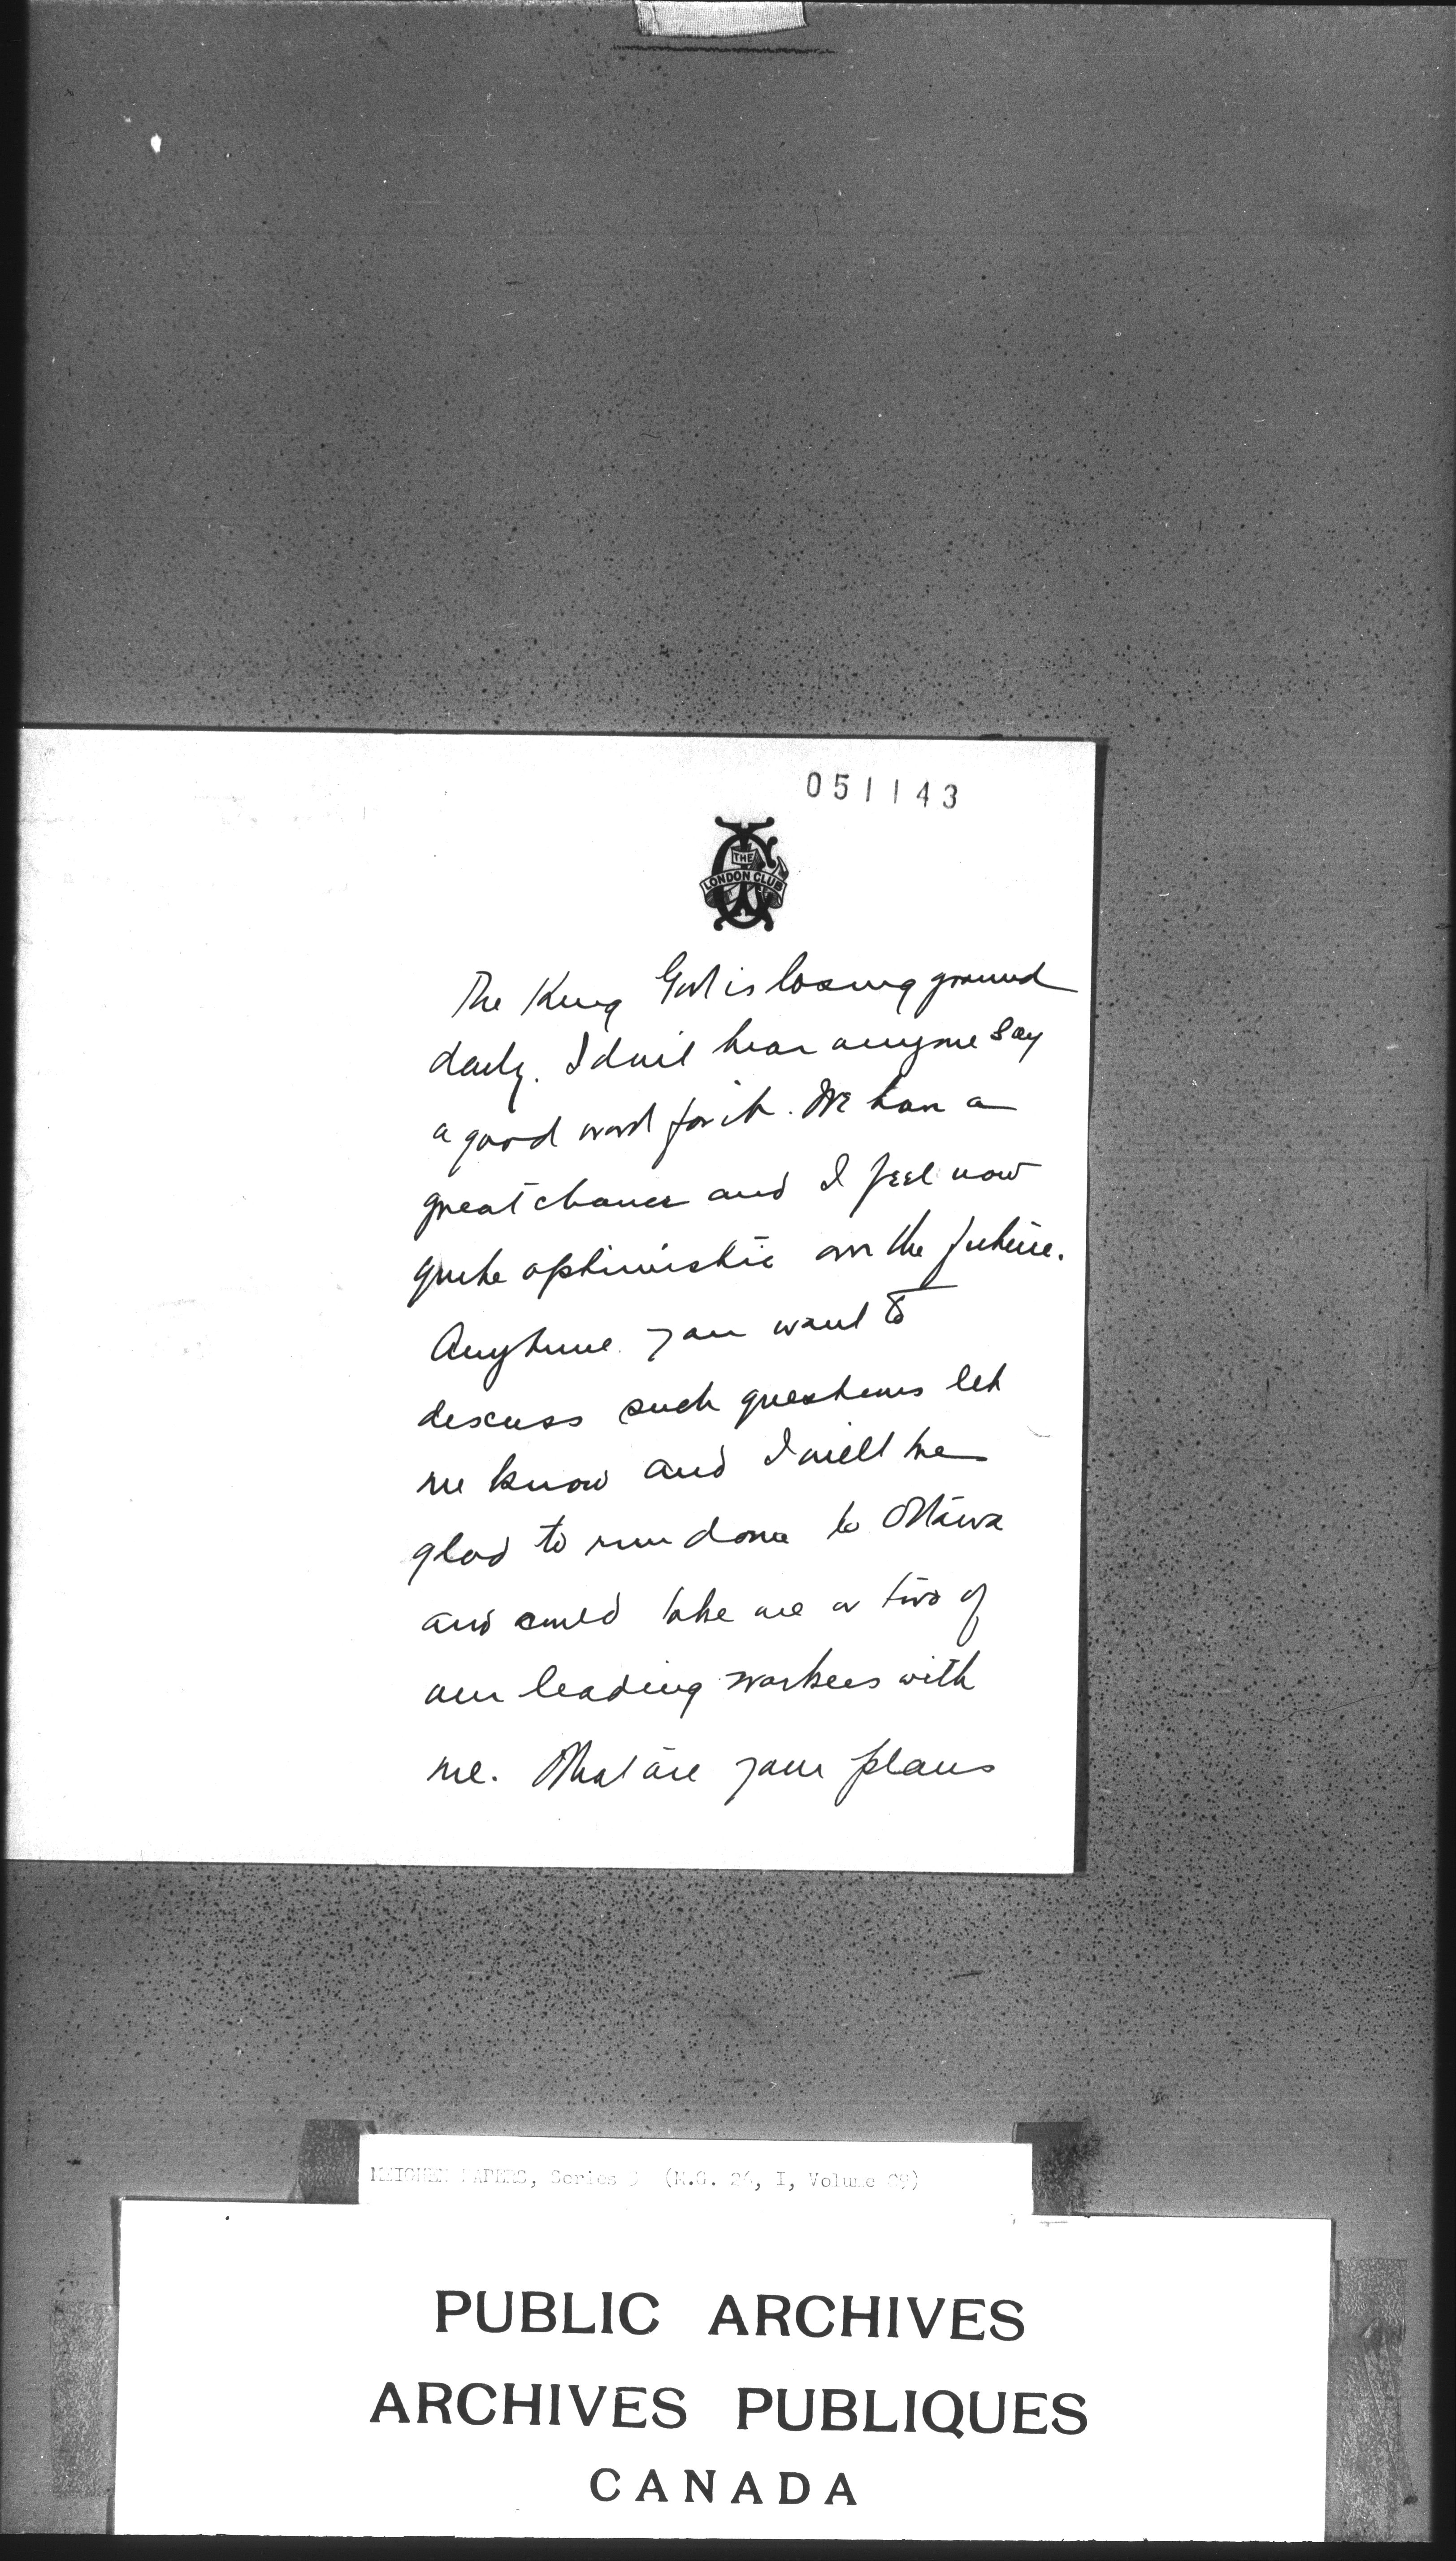 051143
THE
LONDON CLUB
The King Govt is losing ground
daily. I don't hear anyone say
a good word for it. We have a
great chance and I feel now
quite optimistic over the future.
Anytime you want to
discuss such questions let
me know and I will be
glad to run down to Ottawa
and could take one or two of
our leading workers with
me. What are your plans
MEIGHEN PAPERS, Series 3 (M.G. 26, I, Volume 89)
PUBLIC ARCHIVES
ARCHIVES PUBLIQUES
CANADA